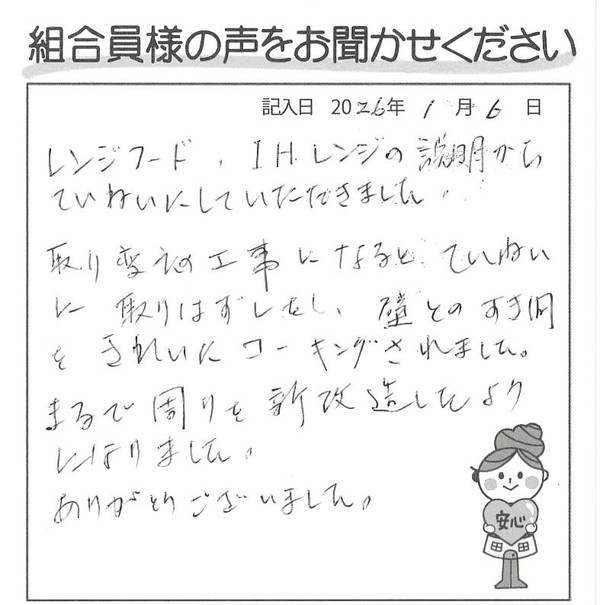 組合員様の声をお聞かせください
記入日 2026年 1月 6日
レンジフード、IHレンジの説明から
ていねいにしていただきました。
取り変えの工事になるとていねい
に取りはずしをし、壁とのすき間
をきれいにコーキングされました。
まるで周りを新改造したよう
になりました。
ありがとうございました。
安心